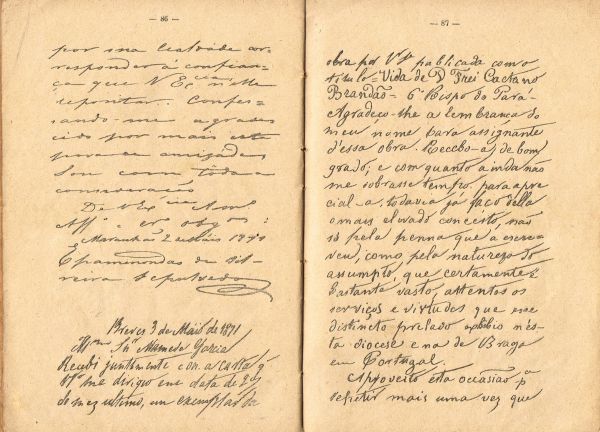 — 86 —
por sua lealdade cor-
responder á confian-
ça que V Ex.cia nelle
repontar. Confes-
sando-me agrade-
cido por mais esta
prova de amizade
Sou com toda a
consideração
De V Ex.cia Am.o
Aff.o e cr.o obg.o
Maranhão 2 de Maio
Epaminondas de Sil-
veira Sepulveda
Breves 3 de Maio de 1871
Ill.mo Snr. Mameda Garcia
Recebi juntamente con a carta q'
V.S.a me dirigio em data de 26
do mez ultimo, um exemplar da
— 87 —
obra por V.S.a publicada com o
titulo = Vida de D. Frei Caetano
Brandão = 6º Bispo do Pará-
Agradeço-lhe a lembrança do
meu nome para assignante
d'essa obra. Recebo-a, de bom
grado; e com quanto ainda não
me sobrasse tempo para apre
cial-a, todavia já faço della
o mais elevado conceito, não
só pela penna que a escre-
veu, como pela natureza do
assumpto, que certamente é
bastante vasto, attentos os
serviços e virtudes que esse
distincto prelado exhibio nes-
ta diocese e na de Braga
em Portugal.
Aproveito esta occasião p.a
repetir mais uma vez que